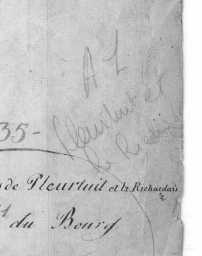 A L
Pleurtuit et
la Richardais
35-
de Pleurtuit et la Richardais
du Bourg